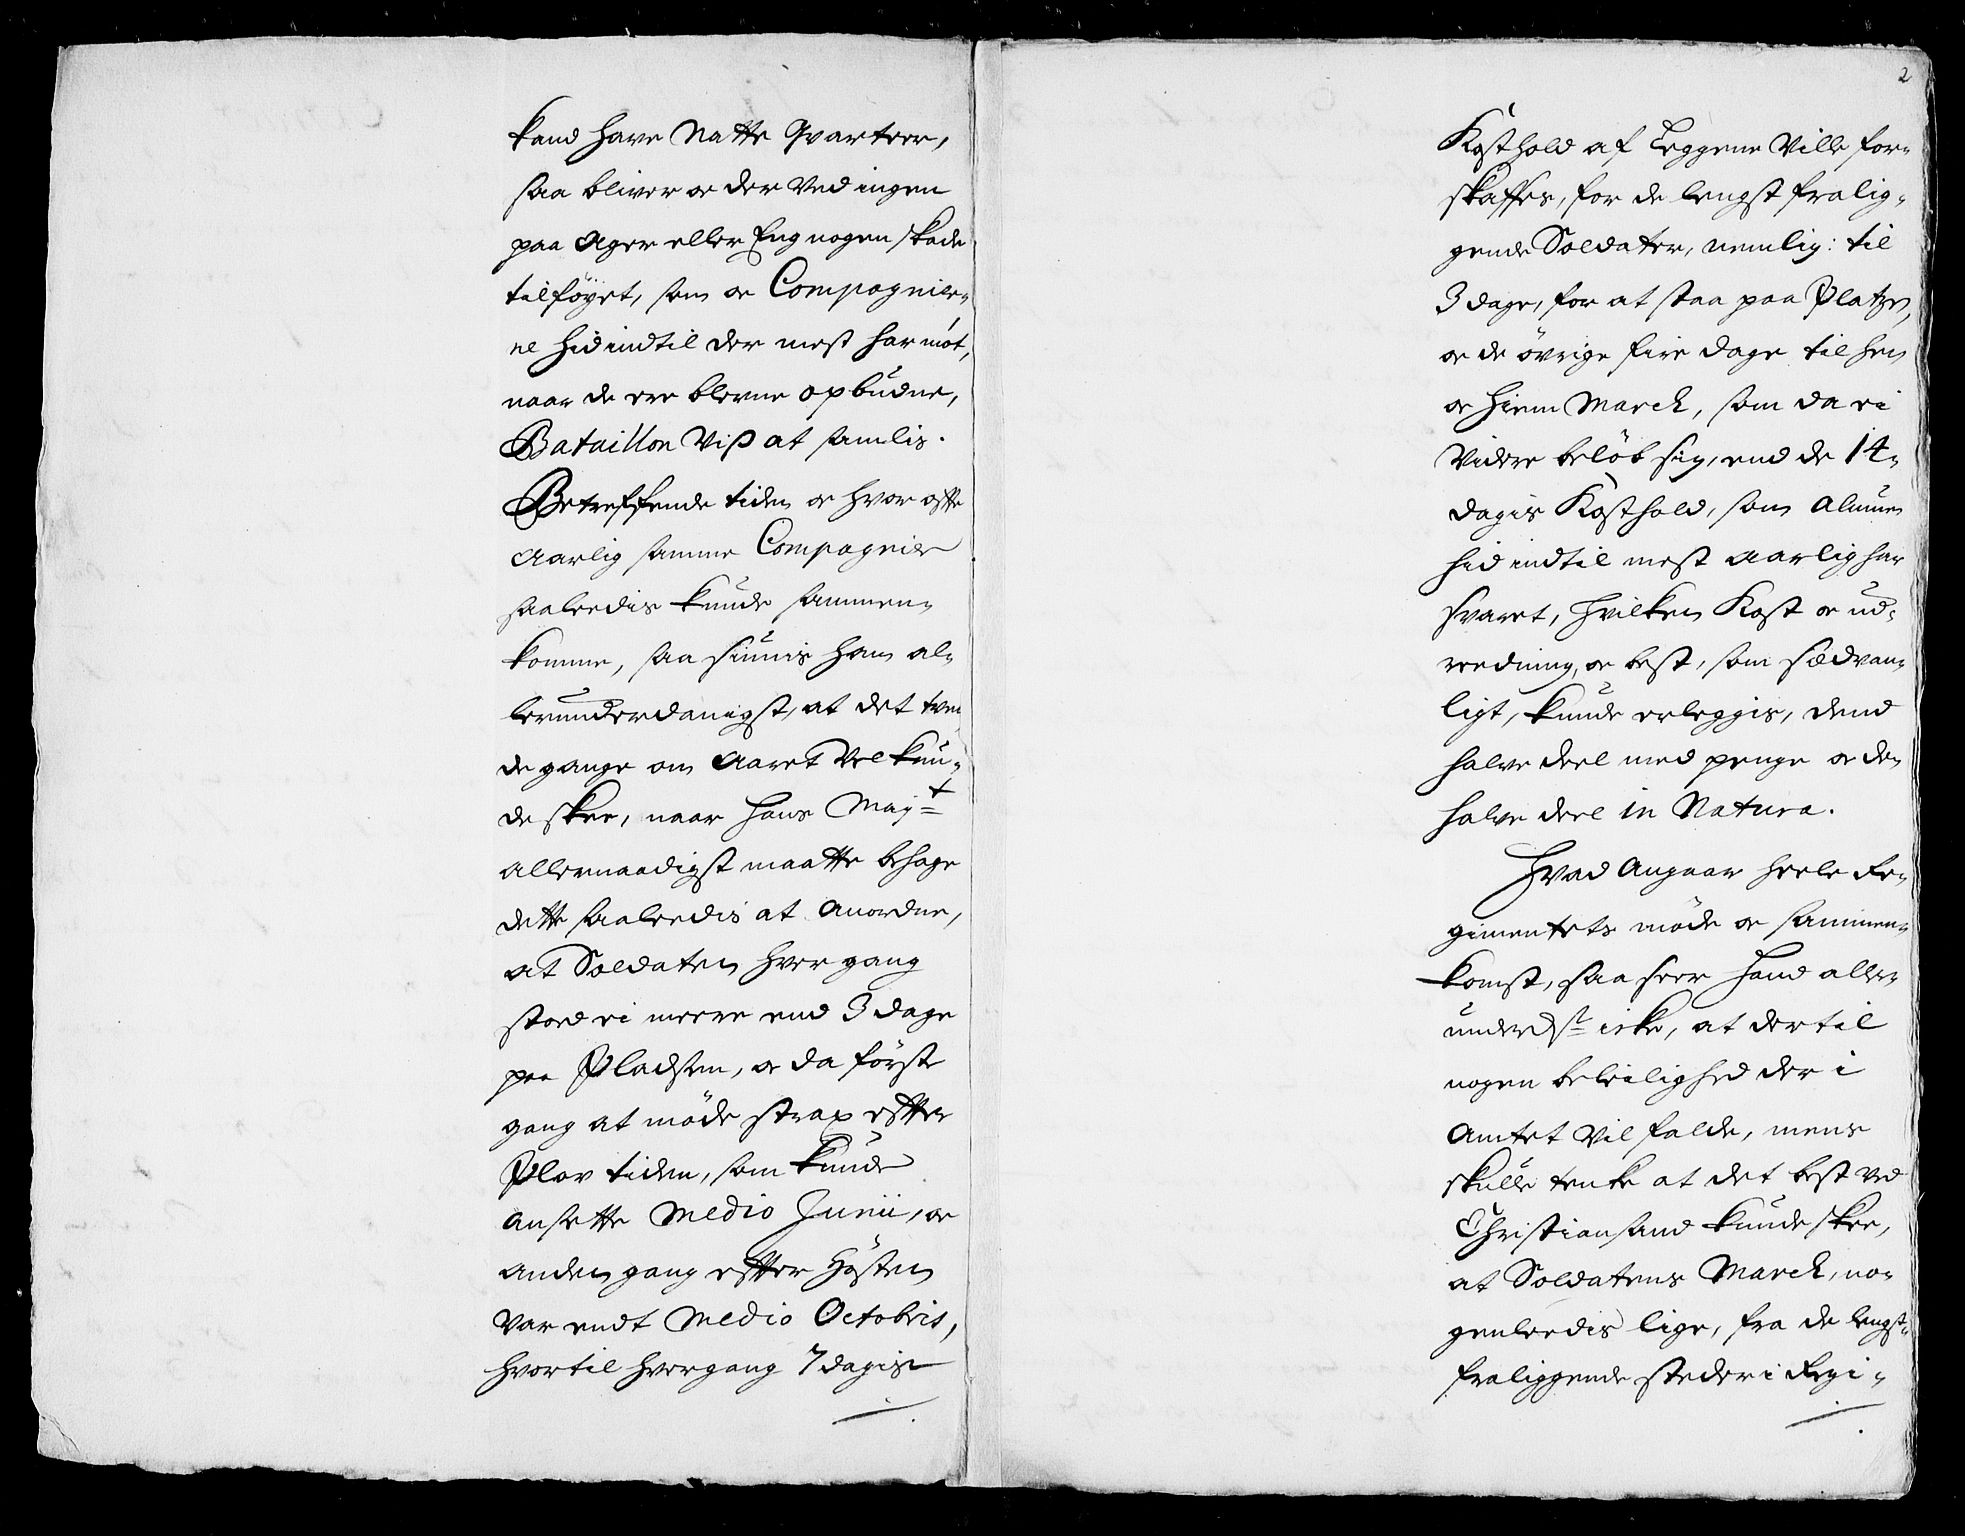 kand have Natte Qvarteer,
saa bliver oc der ved ingen
paa Ager eller Eng nogen skade
tilföyet, som oc Compagnier-
ne hid indtil der mest har möt,
naar de ere blevne opbudne,
Bataillon Viß at samlis.
Betreffende tiden oc hvor offte
Aarlig samme Compagnier
saaledis kunde sammen-
komme, saa siunis ham al-
lerunderdanigst, at det tven
de gange om Aaret Vel kun-
de skee, naar Hans Mayt
Allernaadigst maatte behage
dette saaledis at Anordne,
at Soldaten hver gang
stoed ei meere end 3 dage
paa Pladsen, oc da förste
gang at möde strax effter
Plov tiden, som kunde
ansette Medio Junii, oc
anden gang effter Hösten
var endt Medio Octobris,
hvortil hvergang 7 dagis
2
Kosthold af Leggene Ville for-
skaffes, for de lengst fralig-
gende Soldater, nemlig: til
3 dage, for at staa paa Platzen,
oc de övrige fire dage til hen
oc hiem March, som da ei
Videre belöb sig, end de 14-
dagis Kosthold, som Almuen
hid indtil mest aarlig har
svaret, hvilken Kost oc ud-
reedning, oc best, som sædvan-
ligt, kunde erleggis, dend
halve deel med penge oc den
halve deel in Natura.
Hvad Angaar heele Re-
gimentets möde oc sammen-
komst, saa seer Hand aller-
underdst icke, at dertil
nogen beleilighed der i
Amtet Vil falde, mens
skulle tenke at det best ved
Christiansand kunde skee,
at Soldatens March, no-
genleedis lige, fra de lengst-
fraliggende steder i Regi-